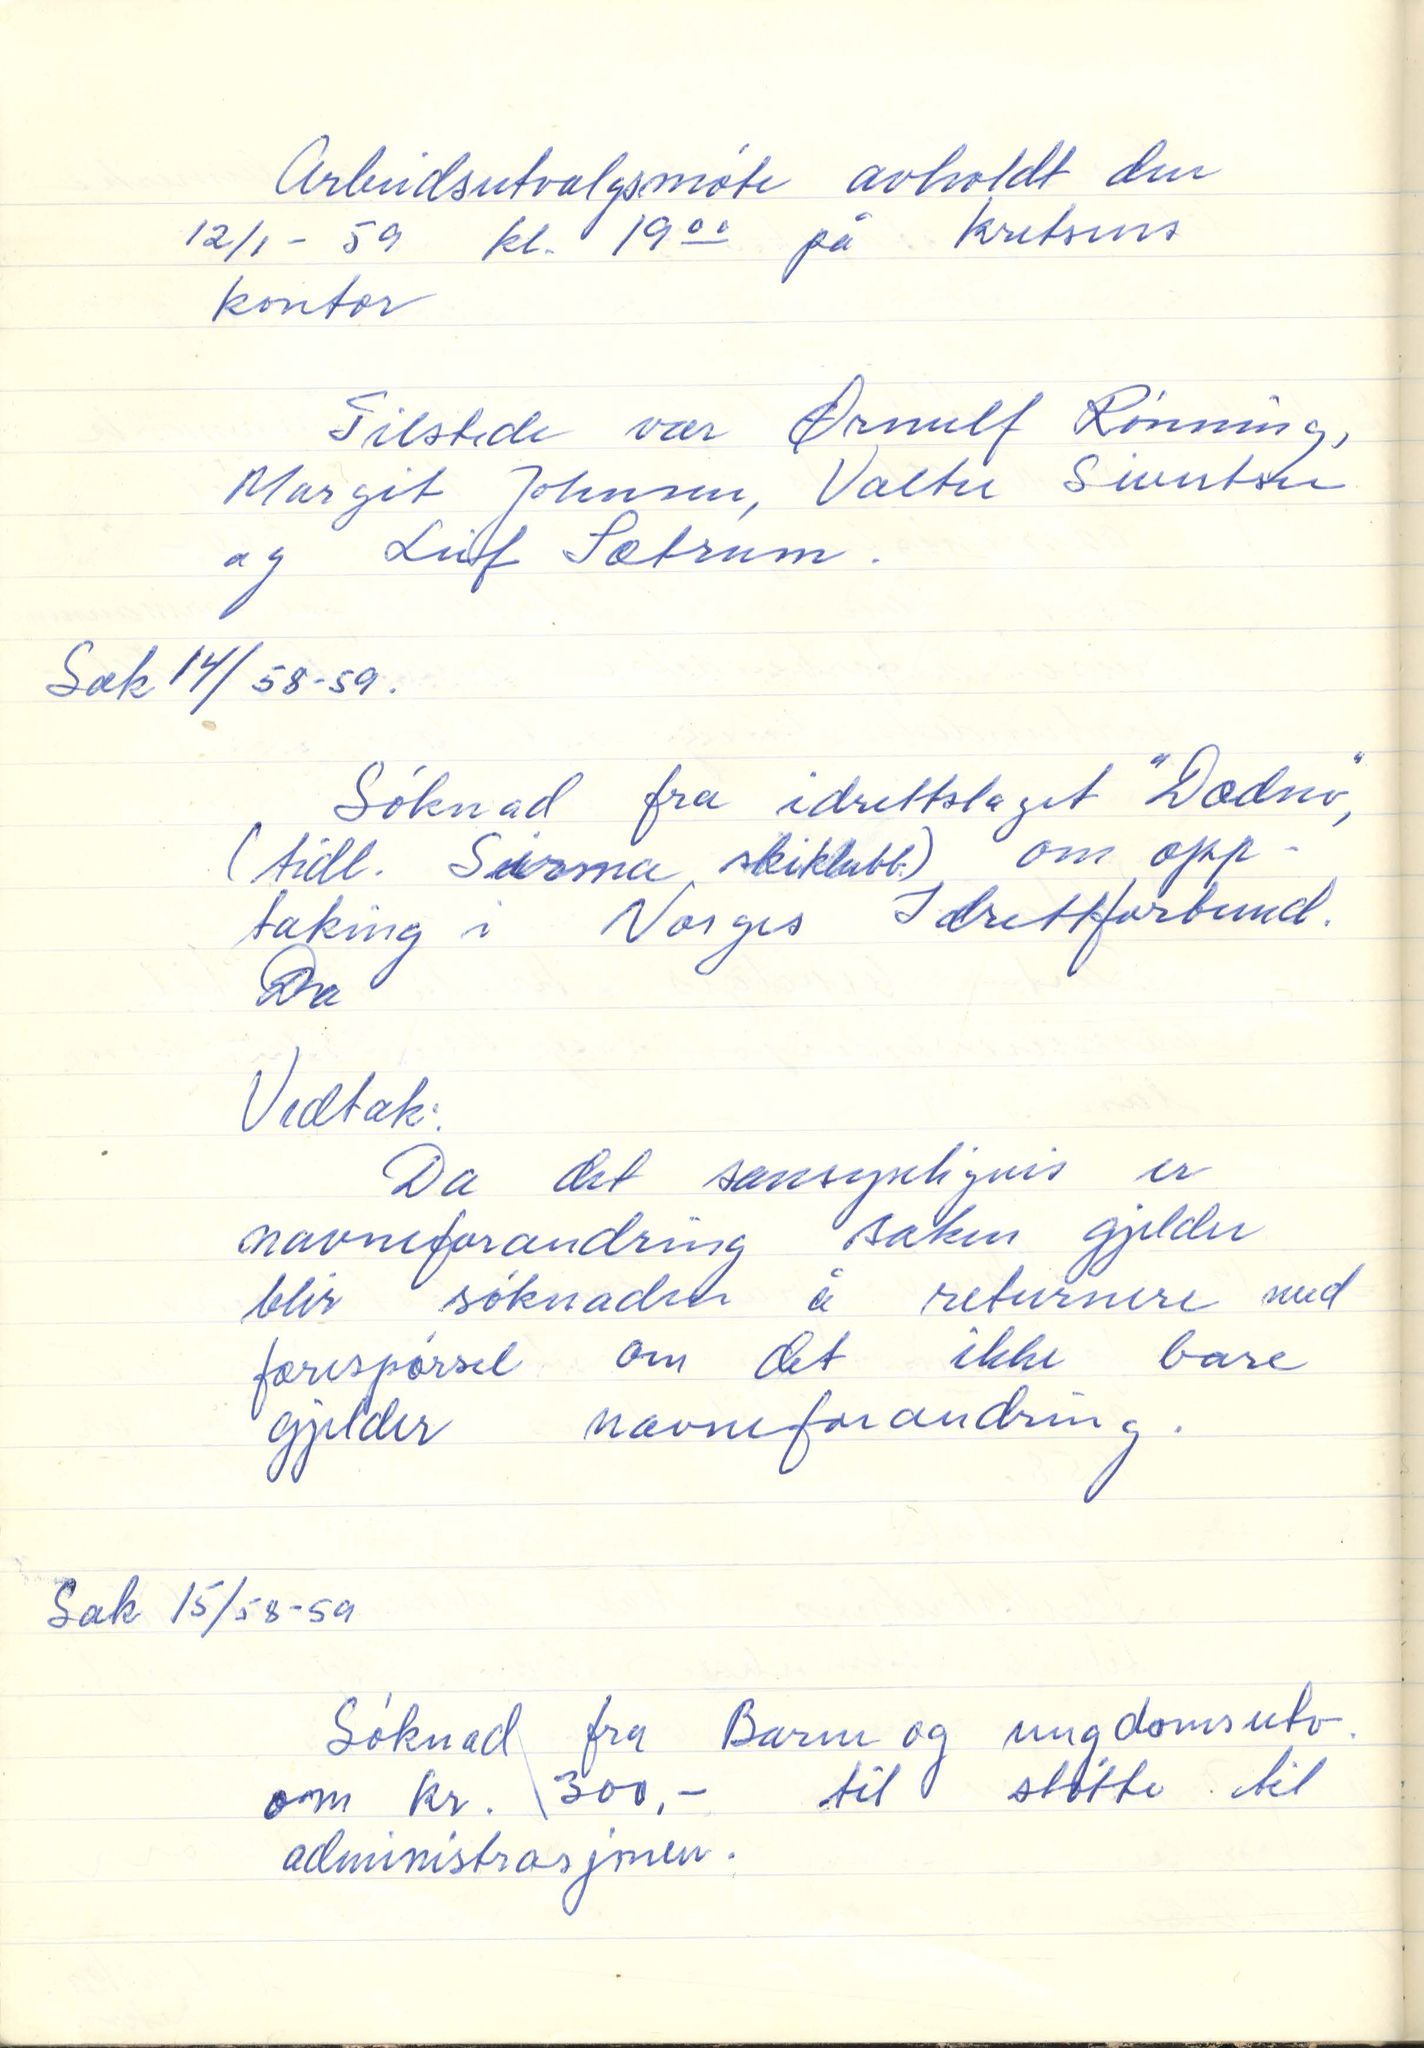 Arbeidsutvalgsmöte avholdt den
12/1 - 59 kl. 19⁰⁰ på kretsens
kontor
Tilstede var Ørnulf Rönning,
Margit Johnsen, Valter Sivertsen
og Leif Sætrum.
Sak 14/58-59.
Söknad fra idrettslaget "Dædno",
(tidl. Sirma skiklubb) om opp-
taking i Norges Idrettforbund.
Da
Vedtak:
Da det sansynligvis er
navneforandring saken gjelder
blir söknaden å returnere med
forespörsel om det ikke bare
gjelder navneforandring.
Sak 15/58-59
Söknad fra Barne og ungdomsutv.
om kr. 300,- til stötte til
administrasjonen.